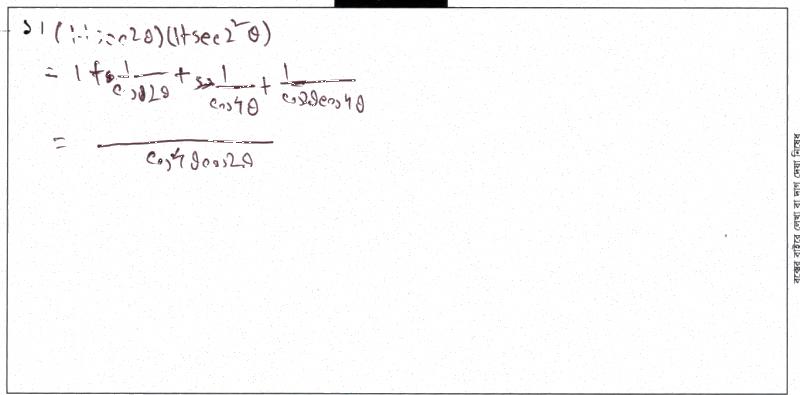 ১। (1+sec2θ)(1+sec2²θ)
= 1 + 1/cos2θ + 1/cos4θ + 1/cos2θcos4θ
= /cos4θcos2θ
বক্সের বাইরে লেখা বা দাগ দেয়া নিষেধ